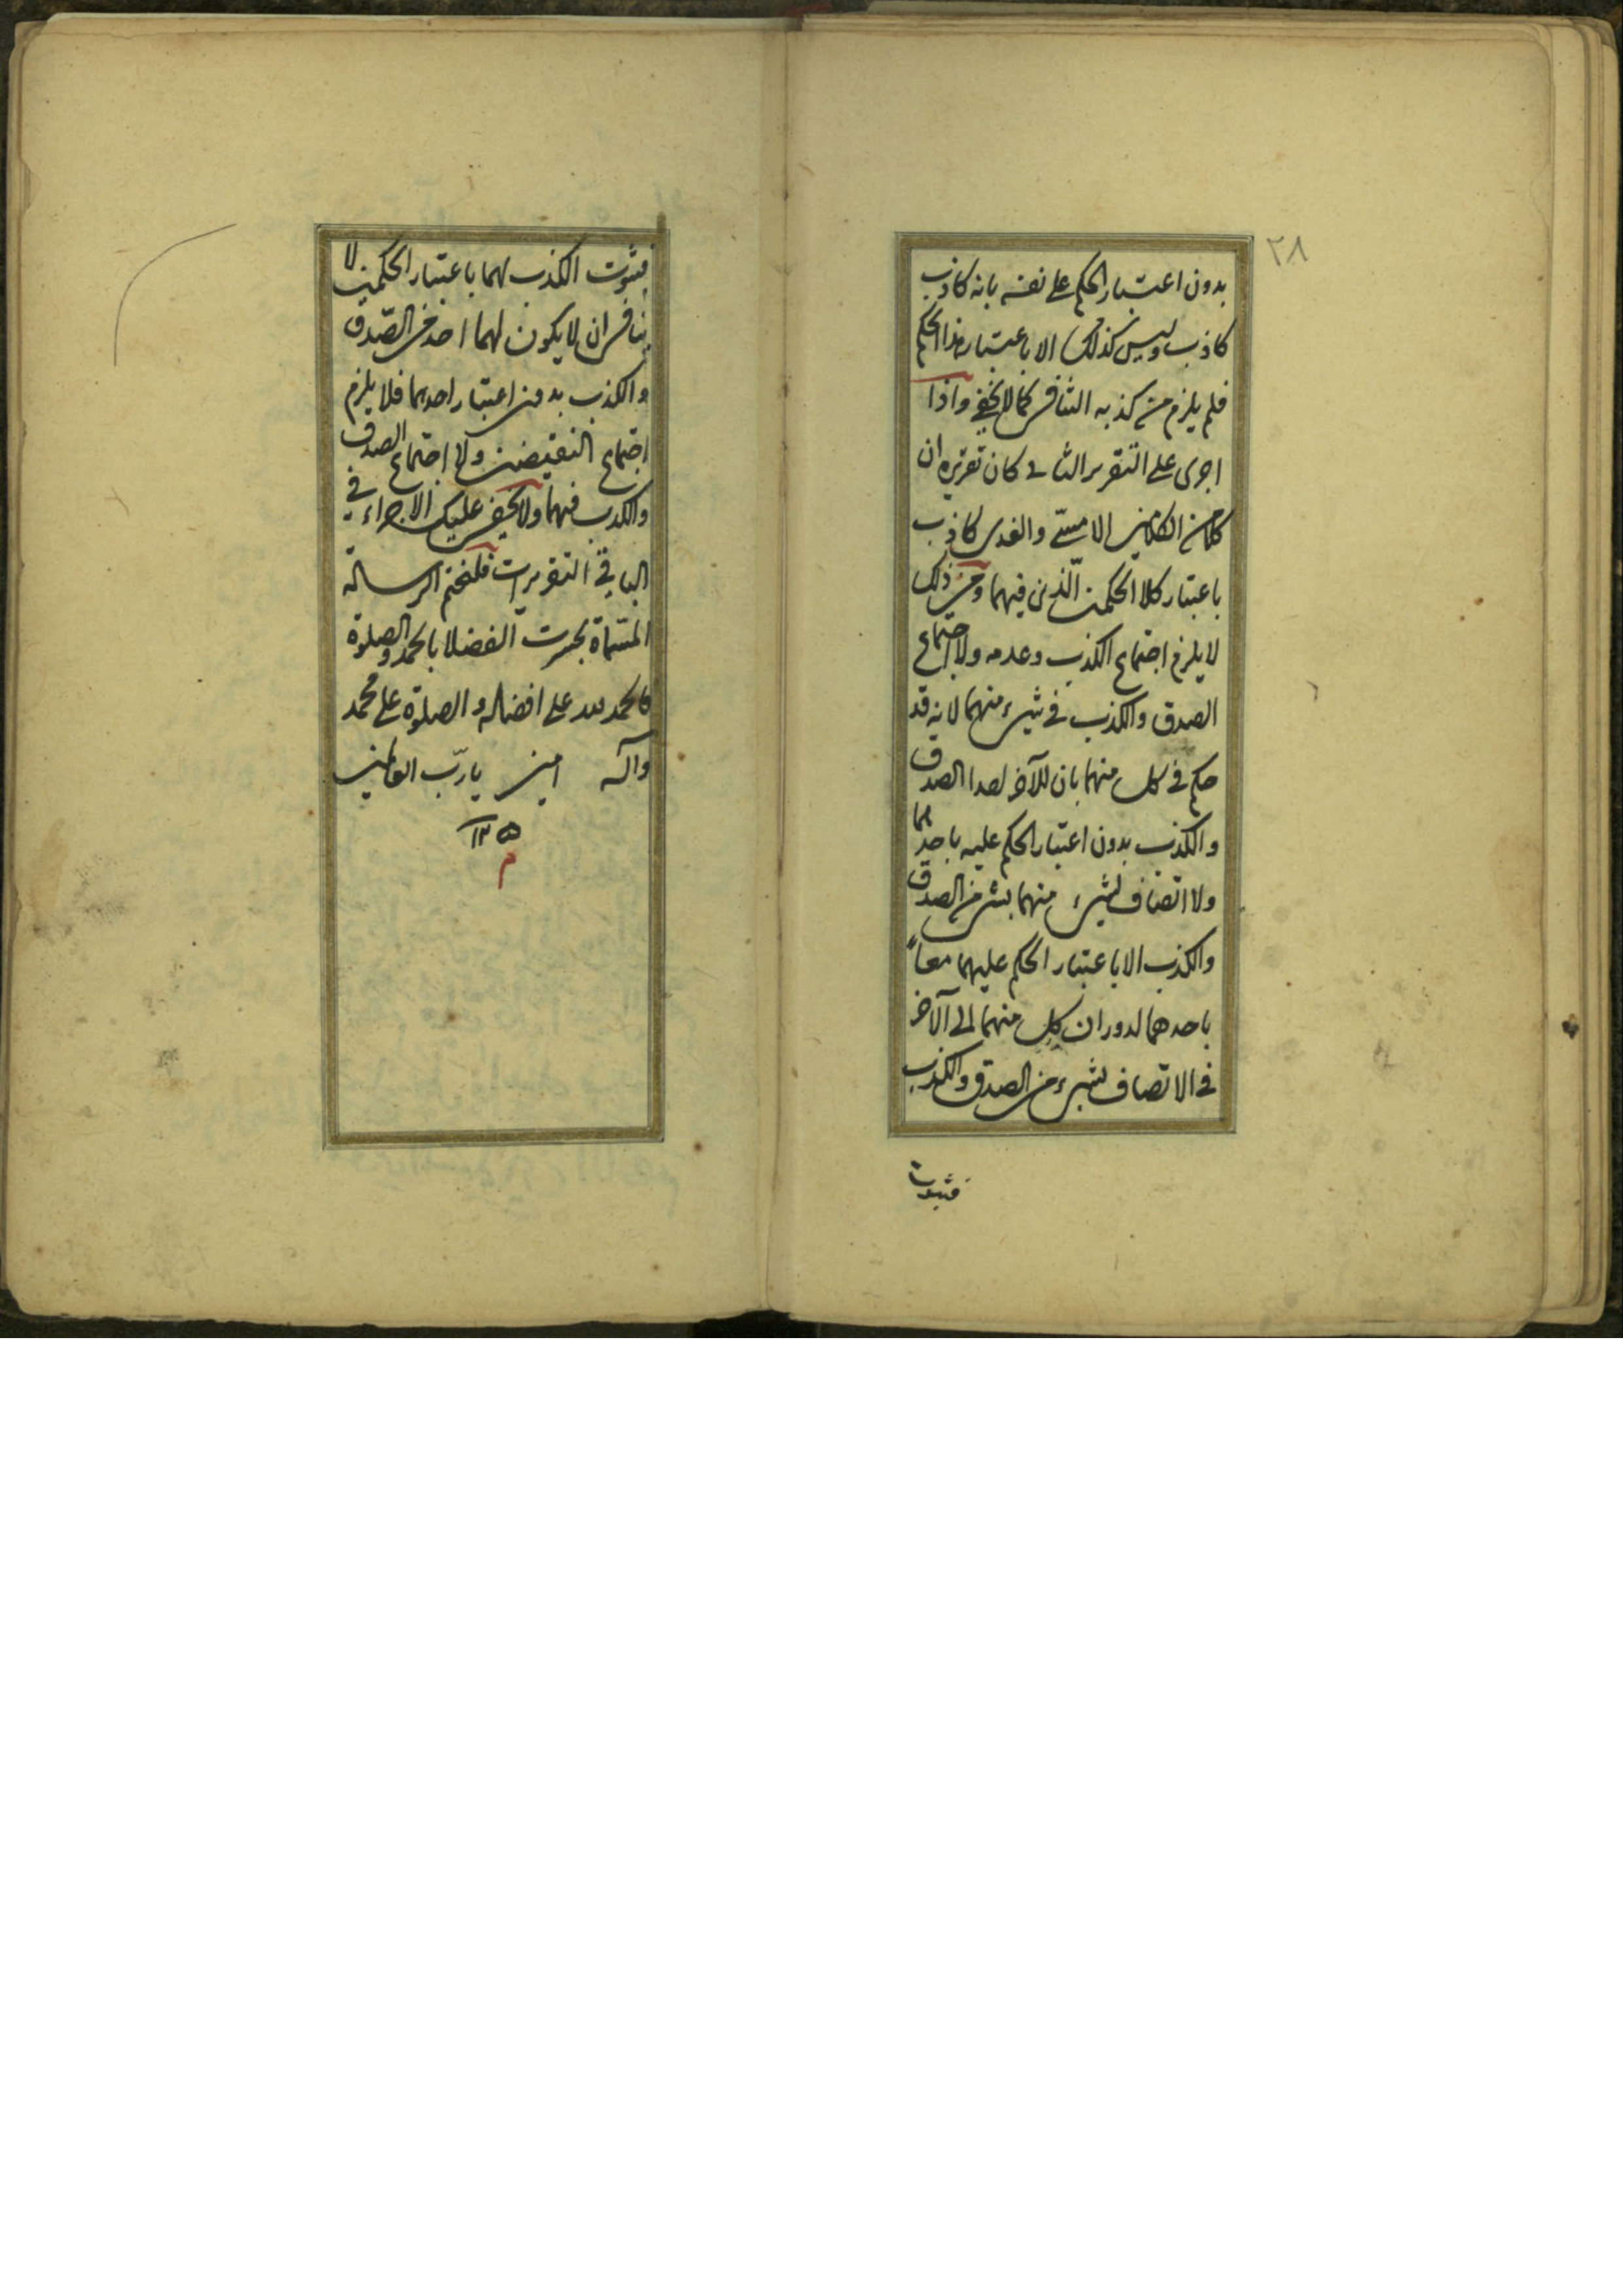 ٢٨
بدون اعتبار الحكم على نفسه بانه كاذب
كاذب وليس كذلك الا باعتبار هذا الحكم
فلم يلزم من كذبه التنافى كما لا يخفى واذا
اجرى على التقرير الثانى كان تقريره ان
كلا من الكلامين الامسى والغدى كاذب
باعتبار كلا الحكمين الّذين فيهما ومن ذلك
لا يلزم اجتماع الكذب وعدمه ولا اجتماع
الصدق والكذب فى شىء منهما لانه قد
حكم فى كل منهما بان للآخر احدا الصدق
والكذب بدون اعتبار الحكم عليه باحدهما
ولا اتصاف لشىء منهما بشىء من الصدق
والكذب الا باعتبار الحكم عليهما معاً
باحدهما لدوران كل منهما الى الآخر
فى الاتصاف بشىء من الصدق والكذب
فثبوت
فثبوت الكذب لهما باعتبار الحكمين لا
ينافى ان لا يكون لهما احد من الصّدق
والكذب بدون اعتبار احدهما فلا يلزم
اجتماع النقيضين ولا اجتماع الصدق
والكذب فيهما ولا يخفى عليك الاجراء فى
الباقى التقريرات فلنختم الرسالة
المسّماة بحسرت الفضلا بالحمد والصلوة
فالحمد لله على افضاله والصلوة على محمد
وآله امين يا ربّ العالمين
م